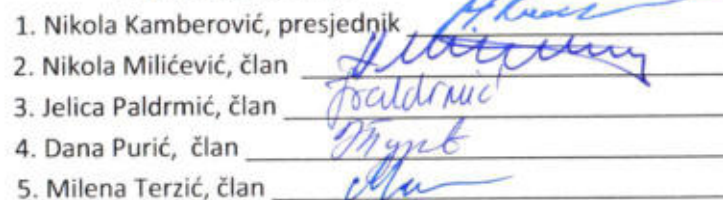 1. Nikola Kamberović, presjednik
2. Nikola Milićević, član
3. Jelica Paldrmić, član JPaldrmić
4. Dana Purić, član
5. Milena Terzić, član